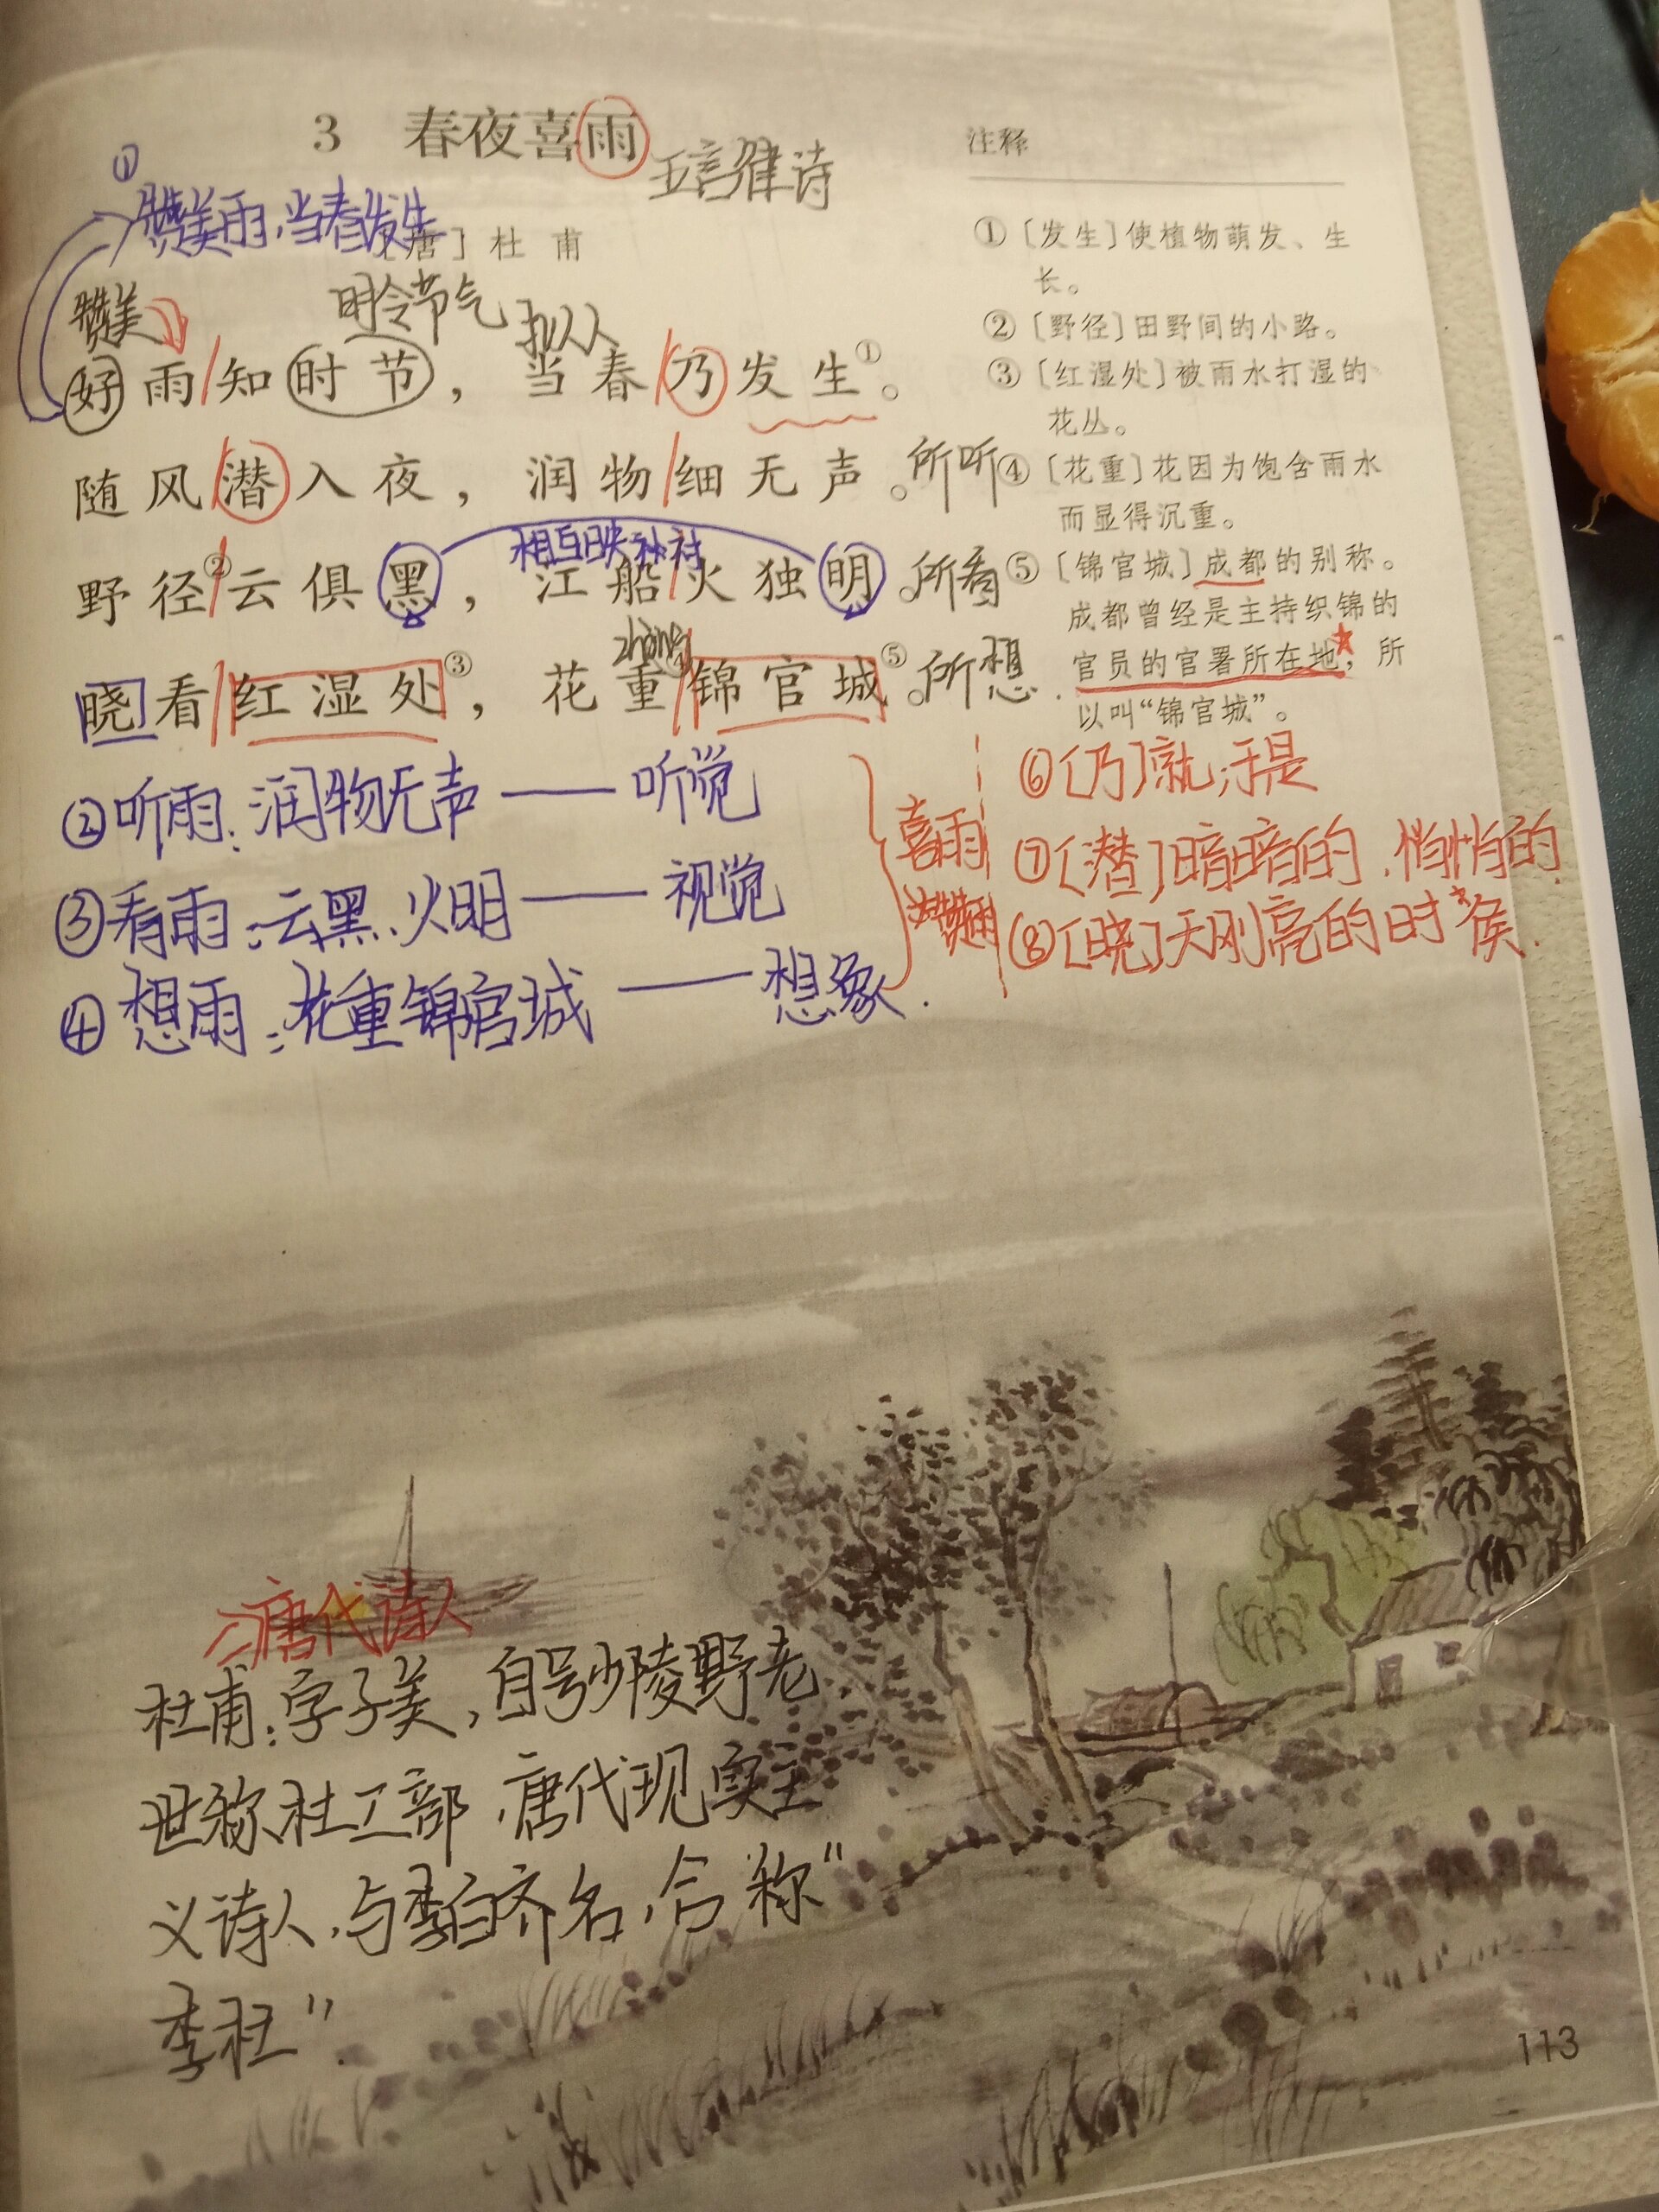 3 春夜喜雨
五言律诗
① 赞美雨,当春发生
[唐] 杜 甫
赞美
时令节气
拟人
好雨知时节,当春乃发生①。
随风潜入夜,润物细无声。所听
相互映衬
野径②云俱黑,江船火独明。所看
zhòng
晓看红湿处③,花重④锦官城⑤。所想.
②听雨:润物无声——听觉
③看雨:云黑、火明——视觉
④想雨:花重锦官城——想象.
喜雨
赞雨
注释
①〔发生〕使植物萌发、生
长。
②〔野径〕田野间的小路。
③〔红湿处〕被雨水打湿的
花丛。
④〔花重〕花因为饱含雨水
而显得沉重。
⑤〔锦官城〕成都的别称。
成都曾经是主持织锦的
官员的官署所在地,所
以叫“锦官城”。
⑥〔乃〕就,于是
⑦〔潜〕暗暗的、悄悄的.
⑧〔晓〕天刚亮的时候.
唐代诗人
杜甫:字子美,自号少陵野老
世称杜工部,唐代现实主
义诗人,与李白齐名,合称“
李杜”.
113